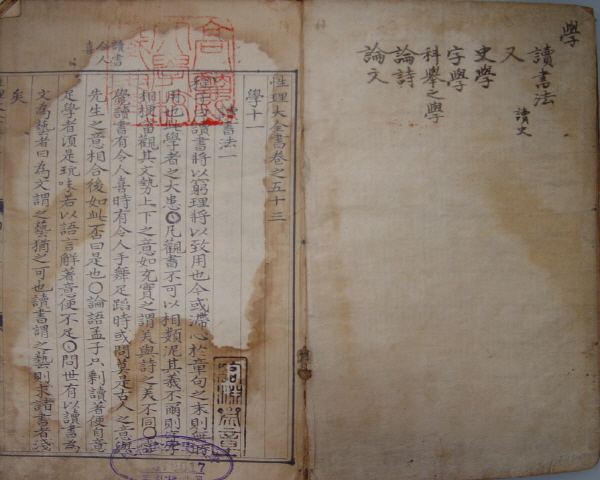 學
讀書法
又 讀史
史學
字學
科舉之學
論詩
論文
讀書
令人
喜
性理大全書卷之五十三
學十一
讀書法一
程子曰讀書將以窮理將以致用也今或滯心於章句之末則無所
用也此學者之大患○凡觀書不可以相類泥其義不爾則字字
相梗當觀其文勢上下之意如充實之謂美與詩之美不同○
覺讀書有令人喜時有令人手舞足蹈時或問莫是古人之意與
先生之意相合後如此否曰是也○論語孟子只剩讀著便自意
足學者須是玩味若以語言解著意便不足○問世有以讀書為
文為藝者曰為文謂之藝猶之可也讀書謂之藝則求諸書者淺
矣